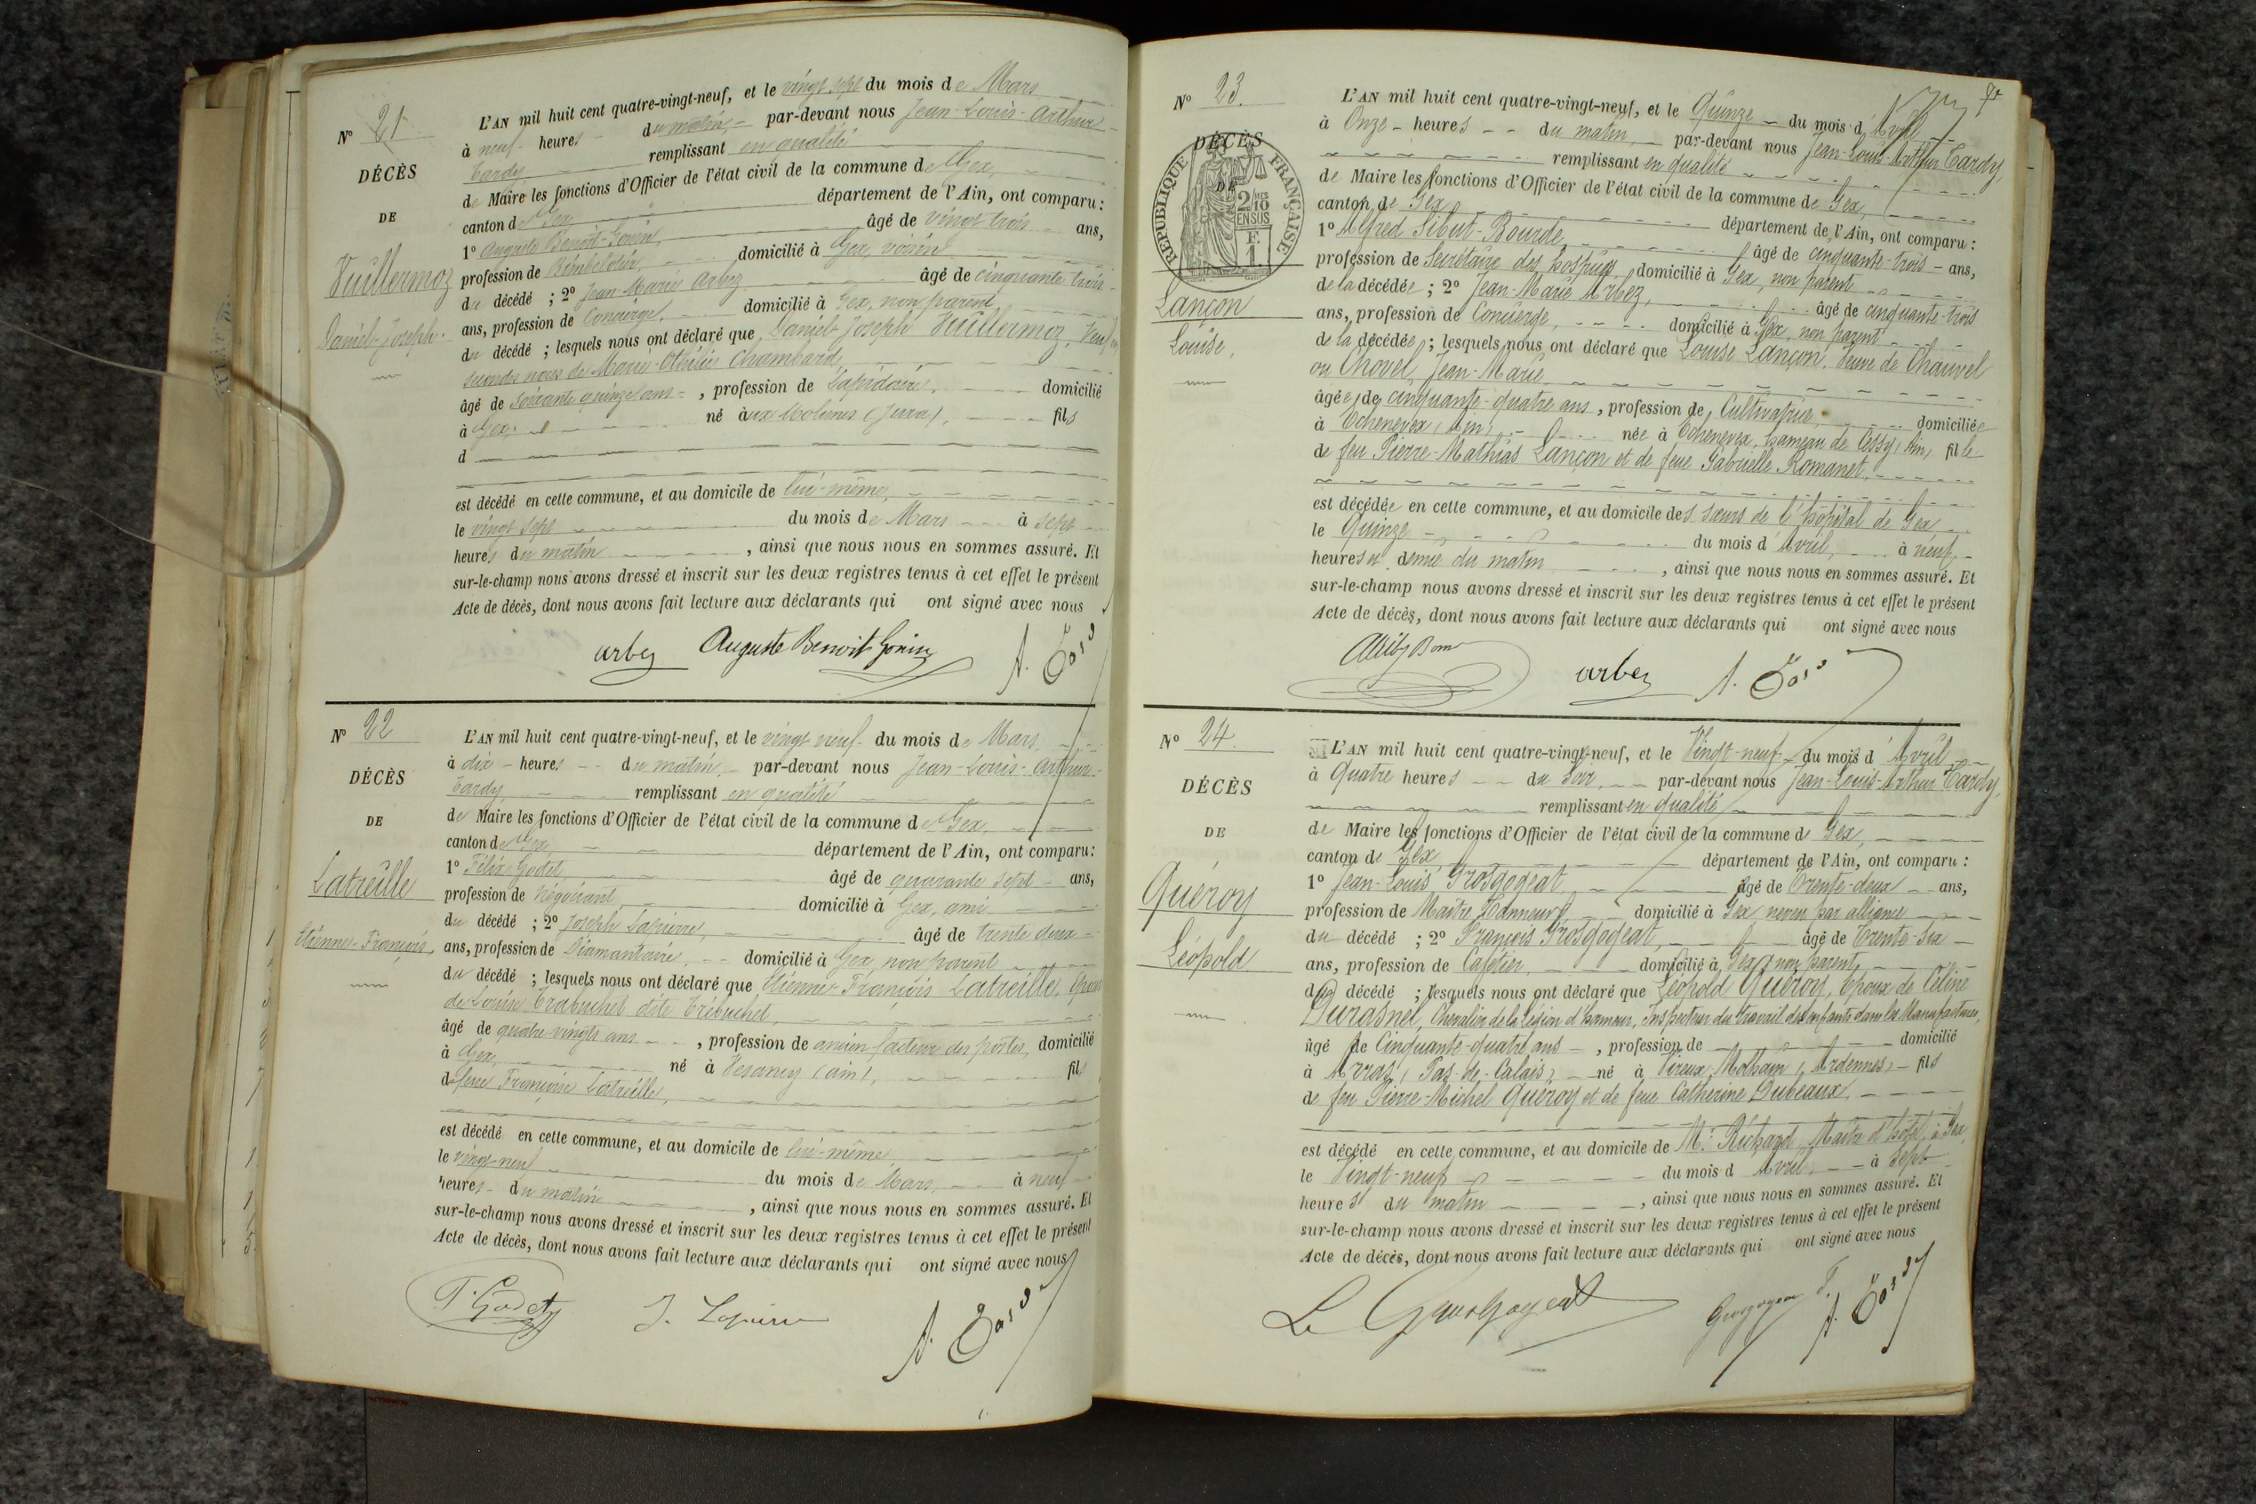 N° 21
DÉCÈS
DE
Vuillermoz
Daniel-Joseph.
L'AN mil huit cent quatre-vingt-neuf, et le vingt sept du mois de Mars
à neuf heures du matin, par-devant nous Jean-Louis-Arthur
Tardy remplissant en qualité
de Maire les fonctions d'Officier de l'état civil de la commune de Gex,
canton de Gex département de l'Ain, ont comparu :
1° Auguste Benoit-Gonin, âgé de vingt trois ans,
profession de domicilié à Gex, voisin
du décédé ; 2° Jean Marie Arbez âgé de cinquante trois
ans, profession de Concierge, domicilié à Gex, non parent
du décédé ; lesquels nous ont déclaré que Daniel Joseph Vuillermoz, Veuf en
secondes noces de Marie Chambard,
âgé de soixante quinze ans, profession de Lapidaire, domicilié
à Gex, né aux Molunes (Jura), fils
d
est décédé en cette commune, et au domicile de lui-même,
le vingt sept du mois de Mars à sept
heures du matin, ainsi que nous nous en sommes assuré. Et
sur-le-champ nous avons dressé et inscrit sur les deux registres tenus à cet effet le présent
Acte de décès, dont nous avons fait lecture aux déclarants qui ont signé avec nous
arbez Auguste Benoit Gonin A. Tardy
N° 22
DÉCÈS
DE
Latreille
Etienne-François
L'AN mil huit cent quatre-vingt-neuf, et le vingt neuf du mois de Mars
à dix heures du matin, par-devant nous Jean-Louis-Arthur
Tardy remplissant en qualité
de Maire les fonctions d'Officier de l'état civil de la commune de Gex,
canton de Gex département de l'Ain, ont comparu :
1° Félix Godet âgé de quarante sept ans,
profession de Négociant, domicilié à Gex, ami
du décédé ; 2° Joseph Lapierre, âgé de trente deux
ans, profession de Diamantaire, domicilié à Gex, non parent
du décédé ; lesquels nous ont déclaré que Etienne François Latreille, Epoux
de Louise Trabuchet dite Trébuchet,
âgé de quatre-vingts ans, profession de ancien facteur des postes, domicilié
à Gex, né à Vesancy (Ain), fils
de feu François Latreille,
est décédé en cette commune, et au domicile de lui-même,
le vingt-neuf du mois de Mars, à neuf
heures du matin, ainsi que nous nous en sommes assuré. Et
sur-le-champ nous avons dressé et inscrit sur les deux registres tenus à cet effet le présent
Acte de décès, dont nous avons fait lecture aux déclarants qui ont signé avec nous
F. Godet J. Lapierre A. Tardy
N° 23.
DÉCÈS
DE
RÉPUBLIQUE FRANÇAISE
2/10 EN SUS
F. 1
Lançon
Louise,
L'AN mil huit cent quatre-vingt-neuf, et le Quinze du mois d'Avril
à Onze heures du matin, par-devant nous Jean-Louis-Arthur Tardy,
remplissant en qualité
de Maire les fonctions d'Officier de l'état civil de la commune de Gex,
canton de Gex département de l'Ain, ont comparu :
1° Alfred Sibut-Bourde, âgé de cinquante-trois ans,
profession de Secrétaire des hospices domicilié à Gex, non parent
de la décédée ; 2° Jean-Marie Arbez, âgé de cinquante-trois
ans, profession de Concierge, domicilié à Gex, non parent
de la décédée ; lesquels nous ont déclaré que Louise Lançon, Veuve de Chauvel
ou Chovel, Jean-Marie
âgée de cinquante-quatre ans, profession de Cultivatrice, domiciliée
à Echenevex (Ain), née à Echenevex, hameau de Cessy (Ain) fille
de feu Pierre-Mathias Lançon et de feue Gabrielle Romanet,
est décédée en cette commune, et au domicile des sœurs de l'hôpital de Gex
le Quinze du mois d'Avril, à neuf
heures et demie du matin, ainsi que nous nous en sommes assuré. Et
sur-le-champ nous avons dressé et inscrit sur les deux registres tenus à cet effet le présent
Acte de décès, dont nous avons fait lecture aux déclarants qui ont signé avec nous
arbez A. Tardy
N° 24.
DÉCÈS
DE
Quéroy
Léopold
L'AN mil huit cent quatre-vingt-neuf, et le Vingt-neuf du mois d'Avril
à Quatre heures du soir, par-devant nous Jean-Louis-Arthur Tardy,
remplissant en qualité
de Maire les fonctions d'Officier de l'état civil de la commune de Gex,
canton de Gex département de l'Ain, ont comparu :
1° Jean-Louis Grosgogeat âgé de Trente-deux ans,
profession de Maître Tanneur, domicilié à Gex, neveu par alliance
du décédé ; 2° François Grosgogeat, âgé de Trente-six
ans, profession de Cafetier, domicilié à Gex, non parent,
du décédé ; lesquels nous ont déclaré que Léopold Quéroy, Epoux de Céline
Durasnel, Chevalier de la Légion d'honneur, Inspecteur du travail des enfants dans les Manufactures,
âgé de Cinquante-quatre ans, profession de domicilié
à Arras (Pas-de-Calais), né à Vireux-Molhain (Ardennes) fils
de feu Pierre-Michel Quéroy et de feue Catherine Dubeaux,
est décédé en cette commune, et au domicile de Mr. Richard, Maître d'hôtel, à Gex,
le Vingt-neuf du mois d'Avril, à sept
heures du matin, ainsi que nous nous en sommes assuré. Et
sur-le-champ nous avons dressé et inscrit sur les deux registres tenus à cet effet le présent
Acte de décès, dont nous avons fait lecture aux déclarants qui ont signé avec nous
L. Grosgogeat Grosgogeat F. A. Tardy